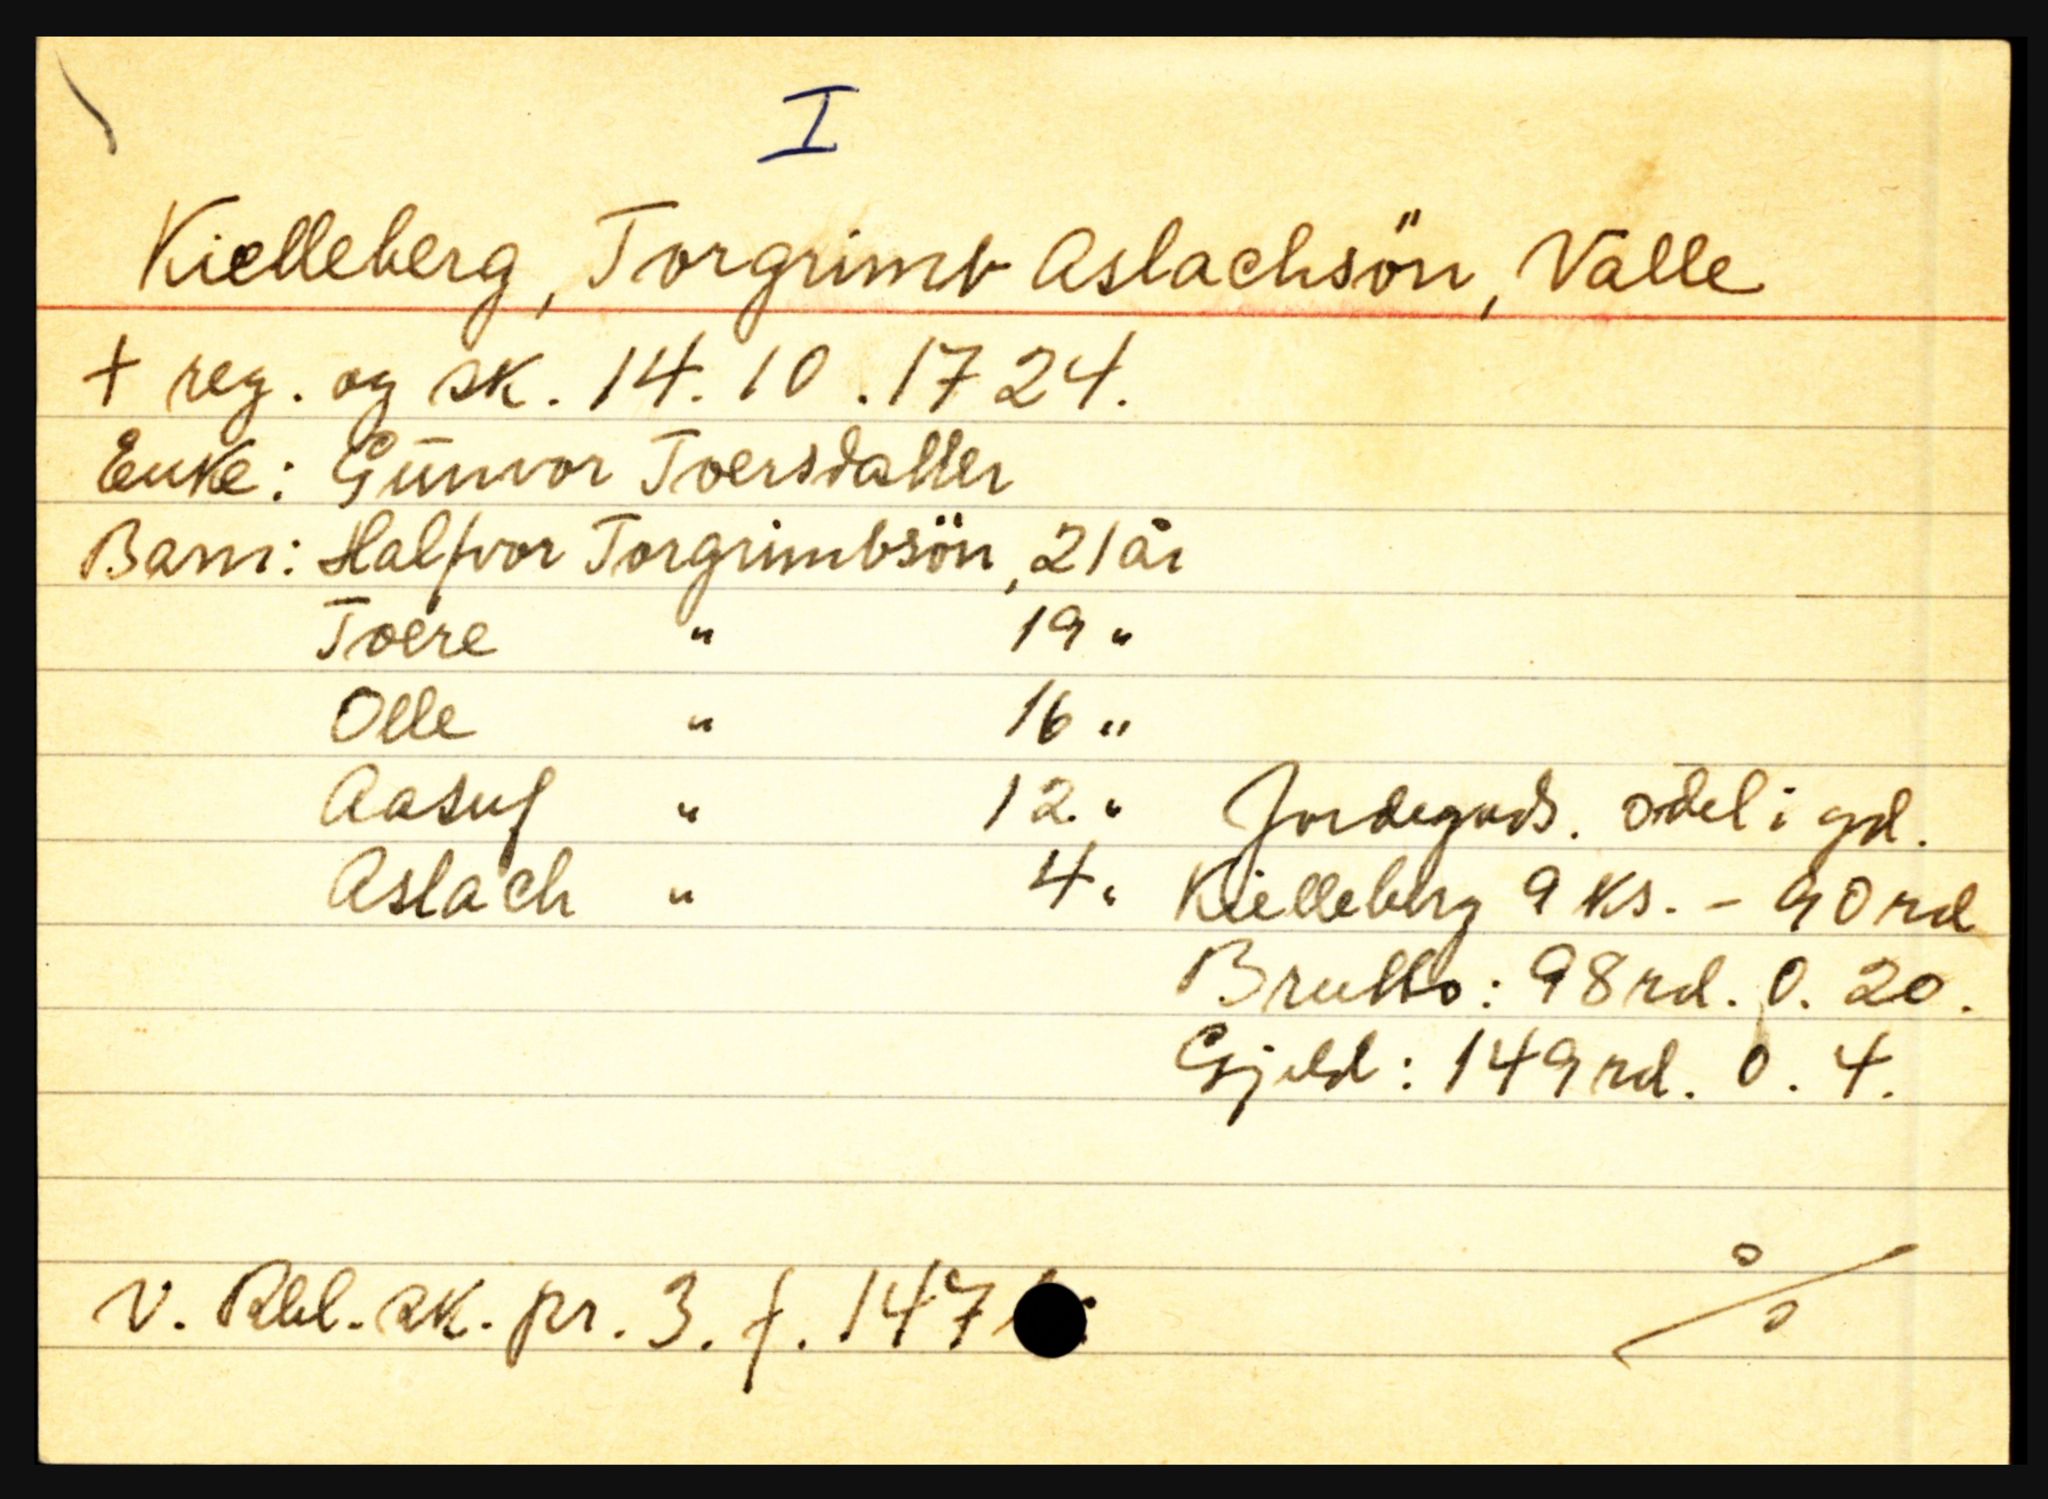 I
Kielleberg, Torgrimb Aslachsön, Valle
+ reg. og sk. 14.10.1724.
Enke: Gunvor Toersdatter
Barn: Halfvor Torgrimbsön, 21 år
Toere " 19 "
Olle " 16 "
Aasuf " 12 " Jordegods. odel i gd.
Aslach " 4 " Kielleberg 9 ks. - 90 rd
Brutto: 98 rd. 0. 20.
Gjeld: 149 rd. 0. 4.
V. Rbl. sk. pr. 3. f. 147
%